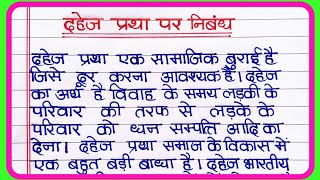 दहेज प्रथा पर निबंध
दहेज प्रथा एक सामाजिक बुराई है
जिसे दूर करना आवश्यक है। दहेज
का अर्थ है विवाह के समय लड़की के
परिवार की तरफ से लड़के के
परिवार को धन सम्पत्ति आदि का
देना। दहेज प्रथा समाज के विकास में
एक बहुत बड़ी बाध्या है। दहेज भारतीय